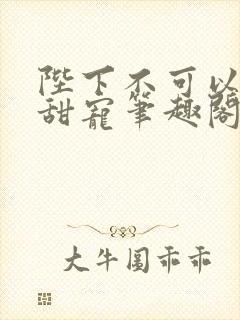 陛下不可以
甜寵筆趣閣
大牛圈乖乖